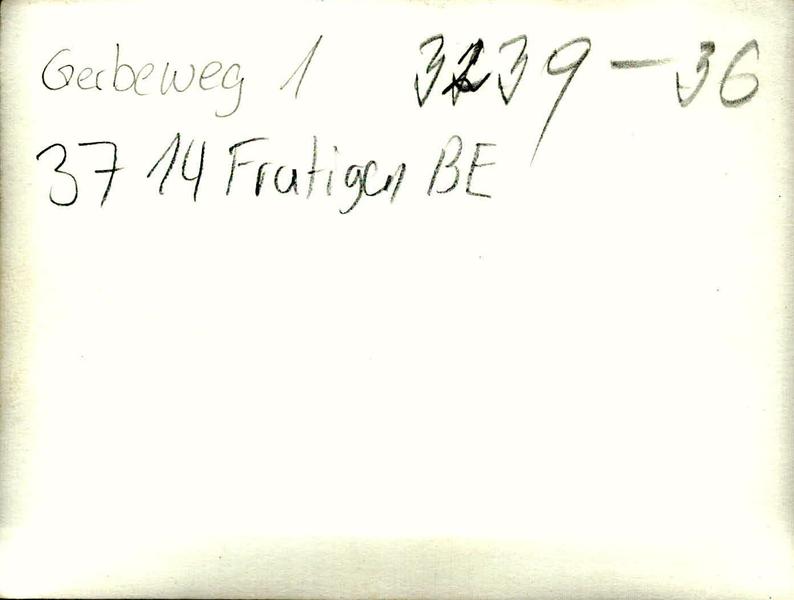 Gerbeweg 1 3239-36
3714 Frutigen BE